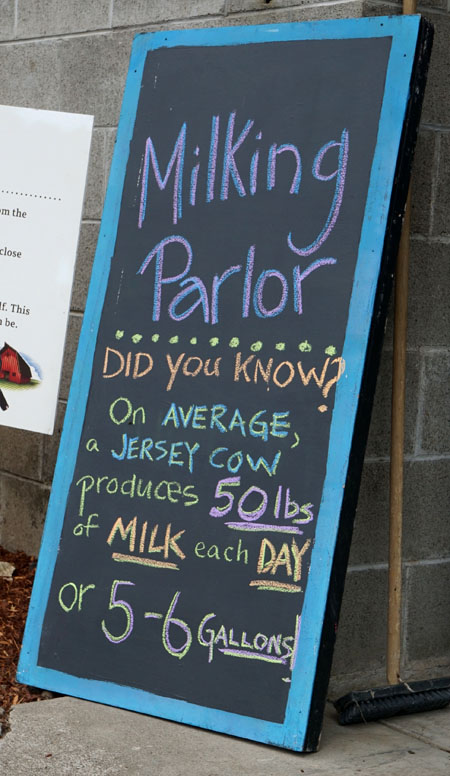 Milking
Parlor
DID YOU KNOW?
On AVERAGE,
a JERSEY COW
produces 50lbs
of MILK each DAY
or 5-6 GALLONS
the
close
This
be.